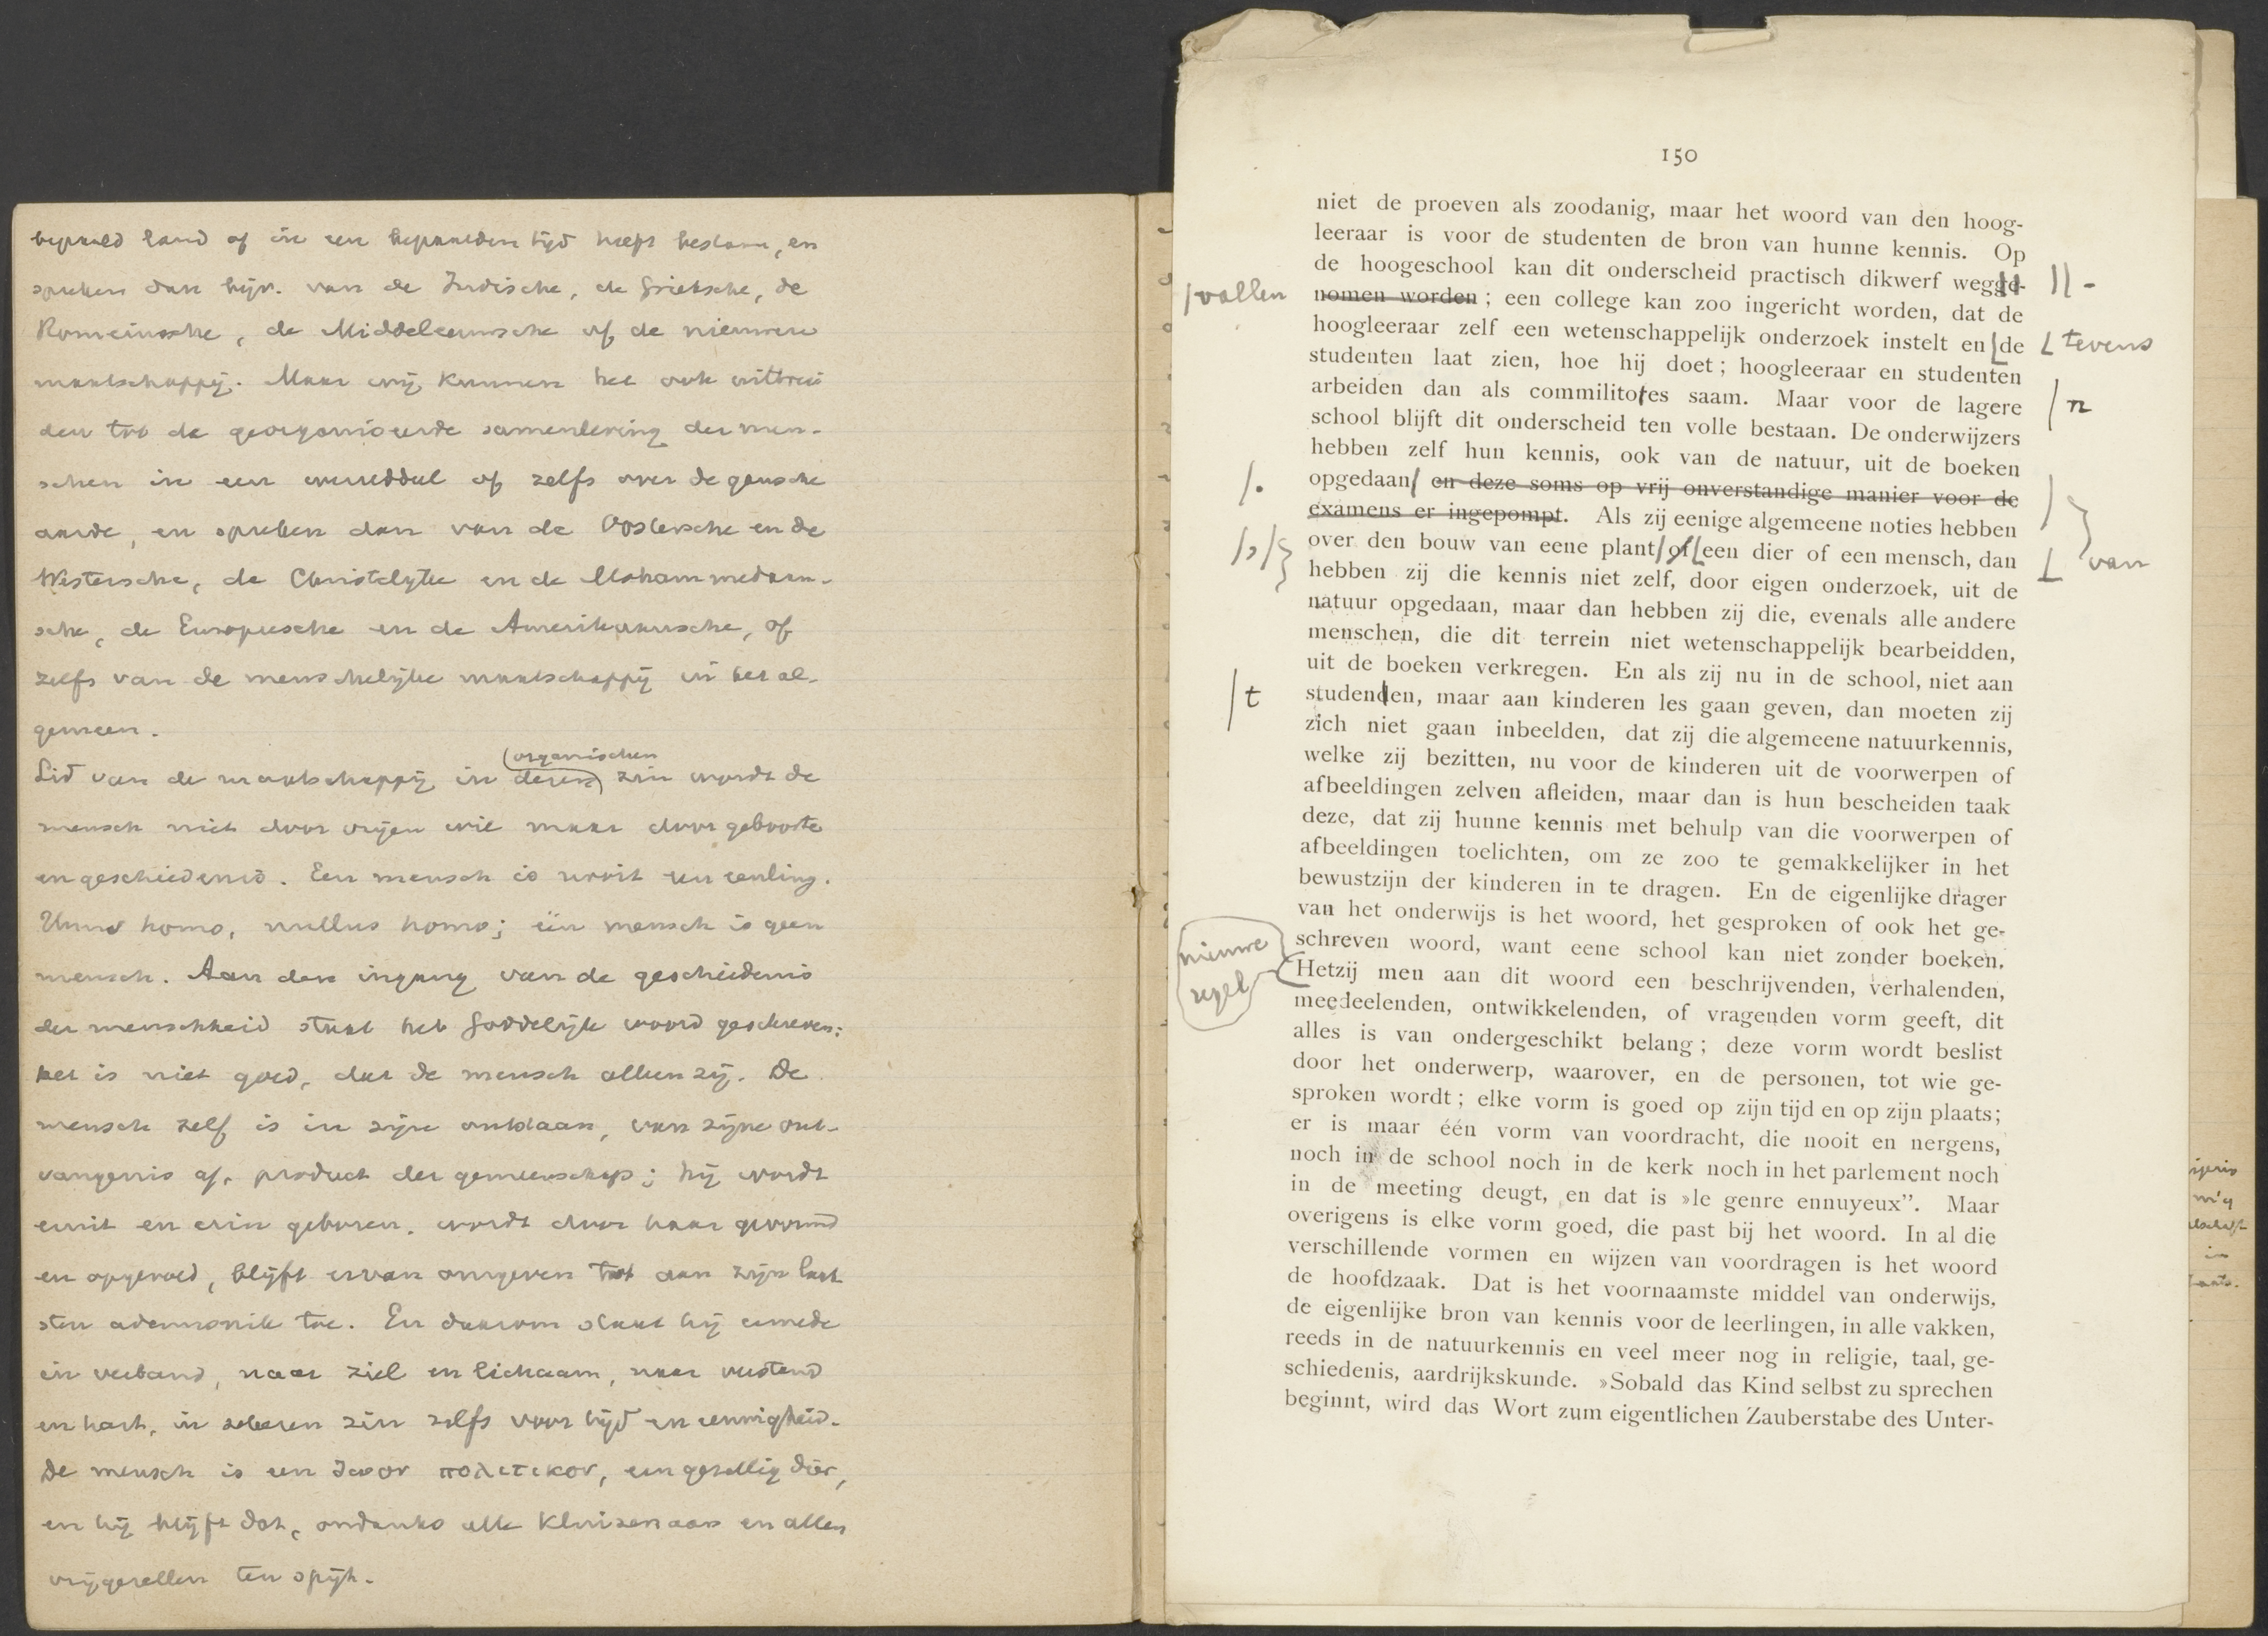 bepaald land of in een bepaalden tijd heeft bestaan, en
spreken dan bijv. van de Indische, de Grieksche, de
Romeinsche, de Middeleeuwsche of de nieuwere
maatschappij. Maar wij kunnen het ook uitbrei
den tot de georganiseerde samenleving der men-
schen in een werelddeel of zelfs over de gansche
aarde, en spreken dan van de Oostersche en de
Westersche, de Christelijke en de Mohammedaan-
sche, de Europeesche en de Amerikaansche, of
zelfs van de menschelijke maatschappij in het al-
gemeen.
(organischen
Lid van de maatschappij in dezen) zin wordt de
mensch niet door vrijen wil maar door geboorte
en geschiedenis. Een mensch is nooit een eenling.
Unus homo, nullus homo; één mensch is geen
mensch. Aan den ingang van de geschiedenis
der menschheid staat het Goddelijk woord geschreven:
het is niet goed, dat de mensch alleen zij. De
mensch zelf is in zijn ontstaan, van zijne ont-
vangenis af, product der gemeenschap; hij wordt
eruit en erin geboren, wordt door haar gevormd
en opgevoed, blijft ervan omgeven tot aan zijn laat
sten ademsnik toe. En daarom staat hij ermede
in verband, naar ziel en lichaam, naar verstand
en hart, in zekeren zin zelfs voor tijd en eeuwigheid.
De mensch is een ζωον πολιτικον, een gezellig dier,
en hij blijft dat, ondanks alle kluizenaars en allen
vrijgezellen ten spijt.
150
niet de proeven als zoodanig, maar het woord van den hoog-
leeraar is voor de studenten de bron van hunne kennis. Op
de hoogeschool kan dit onderscheid practisch dikwerf wegge- || -
/vallen nomen worden; een college kan zoo ingericht worden, dat de
hoogleeraar zelf een wetenschappelijk onderzoek instelt en de tevens
studenten laat zien, hoe hij doet; hoogleeraar en studenten
arbeiden dan als commilitotes saam. Maar voor de lagere /n
school blijft dit onderscheid ten volle bestaan. De onderwijzers
hebben zelf hun kennis, ook van de natuur, uit de boeken
/. opgedaan en deze soms op vrij onverstandige manier voor de
examens er ingepompt. Als zij eenige algemeene noties hebben
over den bouw van eene plant of een dier of een mensch, dan van
hebben zij die kennis niet zelf, door eigen onderzoek, uit de
natuur opgedaan, maar dan hebben zij die, evenals alle andere
menschen, die dit terrein niet wetenschappelijk bearbeidden,
uit de boeken verkregen. En als zij nu in de school, niet aan
/t studenden, maar aan kinderen les gaan geven, dan moeten zij
zich niet gaan inbeelden, dat zij die algemeene natuurkennis,
welke zij bezitten, nu voor de kinderen uit de voorwerpen of
afbeeldingen zelven afleiden, maar dan is hun bescheiden taak
deze, dat zij hunne kennis met behulp van die voorwerpen of
afbeeldingen toelichten, om ze zoo te gemakkelijker in het
bewustzijn der kinderen in te dragen. En de eigenlijke drager
van het onderwijs is het woord, het gesproken of ook het ge-
schreven woord, want eene school kan niet zonder boeken.
nieuwe
regel
Hetzij men aan dit woord een beschrijvenden, verhalenden,
meedeelenden, ontwikkelenden, of vragenden vorm geeft, dit
alles is van ondergeschikt belang; deze vorm wordt beslist
door het onderwerp, waarover, en de personen, tot wie ge-
sproken wordt; elke vorm is goed op zijn tijd en op zijn plaats;
er is maar één vorm van voordracht, die nooit en nergens,
noch in de school noch in de kerk noch in het parlement noch
in de meeting deugt, en dat is »le genre ennuyeux”. Maar
overigens is elke vorm goed, die past bij het woord. In al die
verschillende vormen en wijzen van voordragen is het woord
de hoofdzaak. Dat is het voornaamste middel van onderwijs,
de eigenlijke bron van kennis voor de leerlingen, in alle vakken,
reeds in de natuurkennis en veel meer nog in religie, taal, ge-
schiedenis, aardrijkskunde. »Sobald das Kind selbst zu sprechen
beginnt, wird das Wort zum eigentlichen Zauberstabe des Unter-